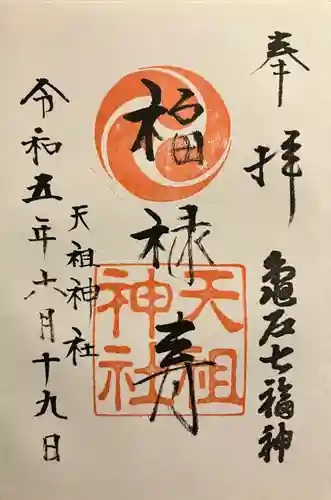 奉拝
亀戸七福神
福禄寿
天祖
神社
天祖神社
令和五年六月十九日